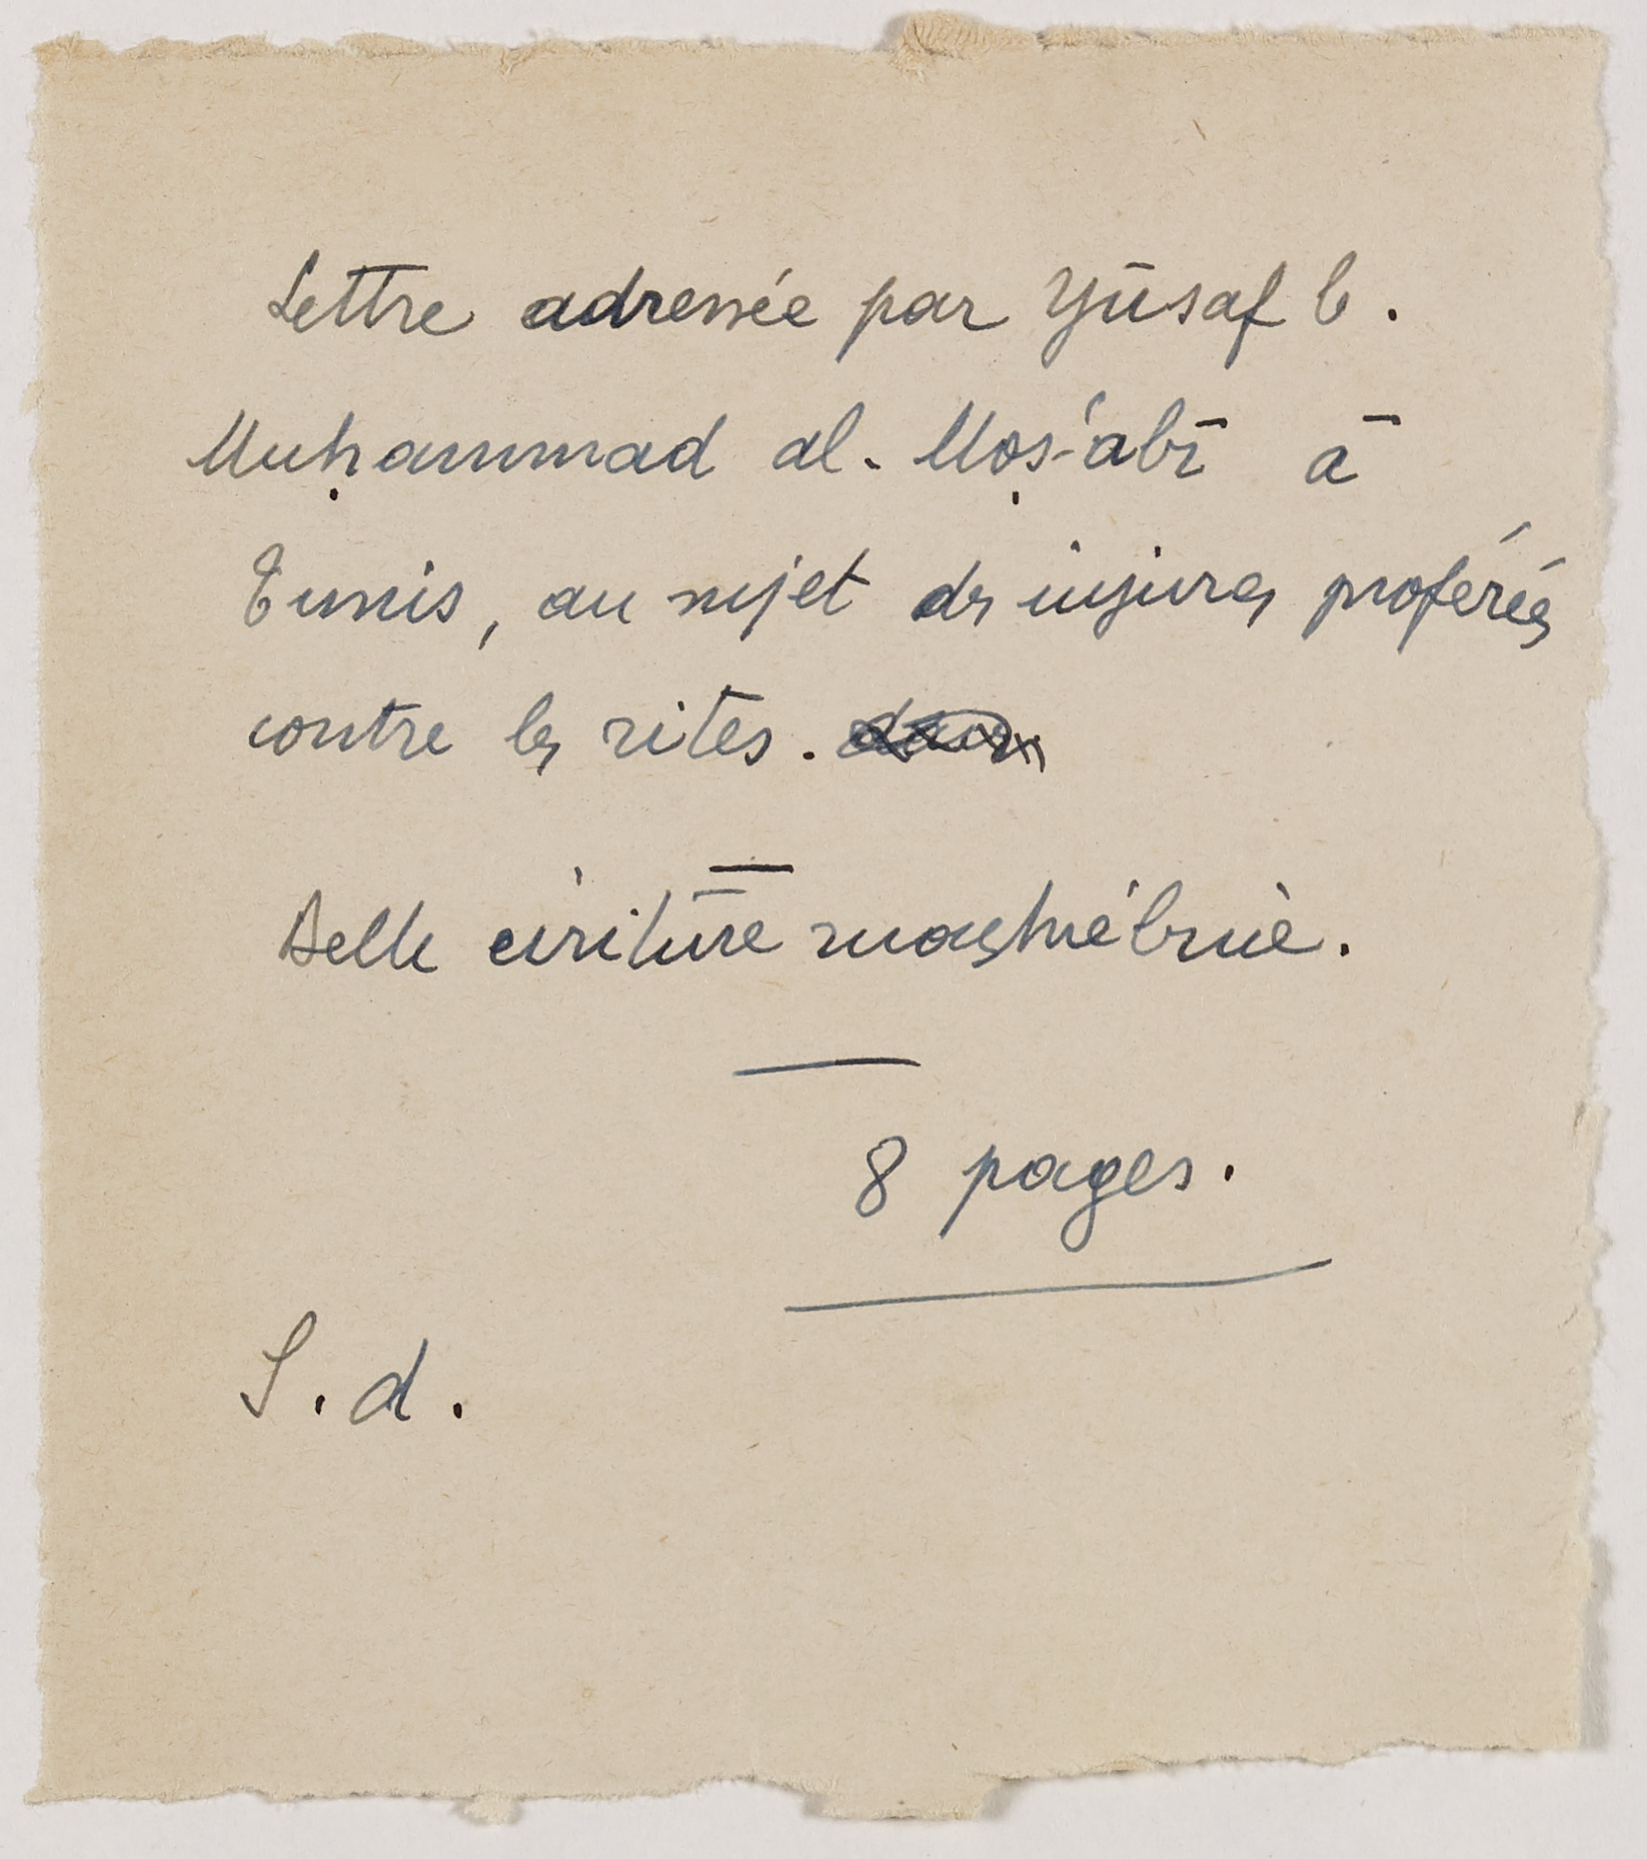 Lettre adressée par Yūsaf b.
Muḥammad al-Moṣ‘abī à
Tunis, au sujet des injures proférées
contre les rites.
Belle écriture maghrébine.
8 pages.
S.d.